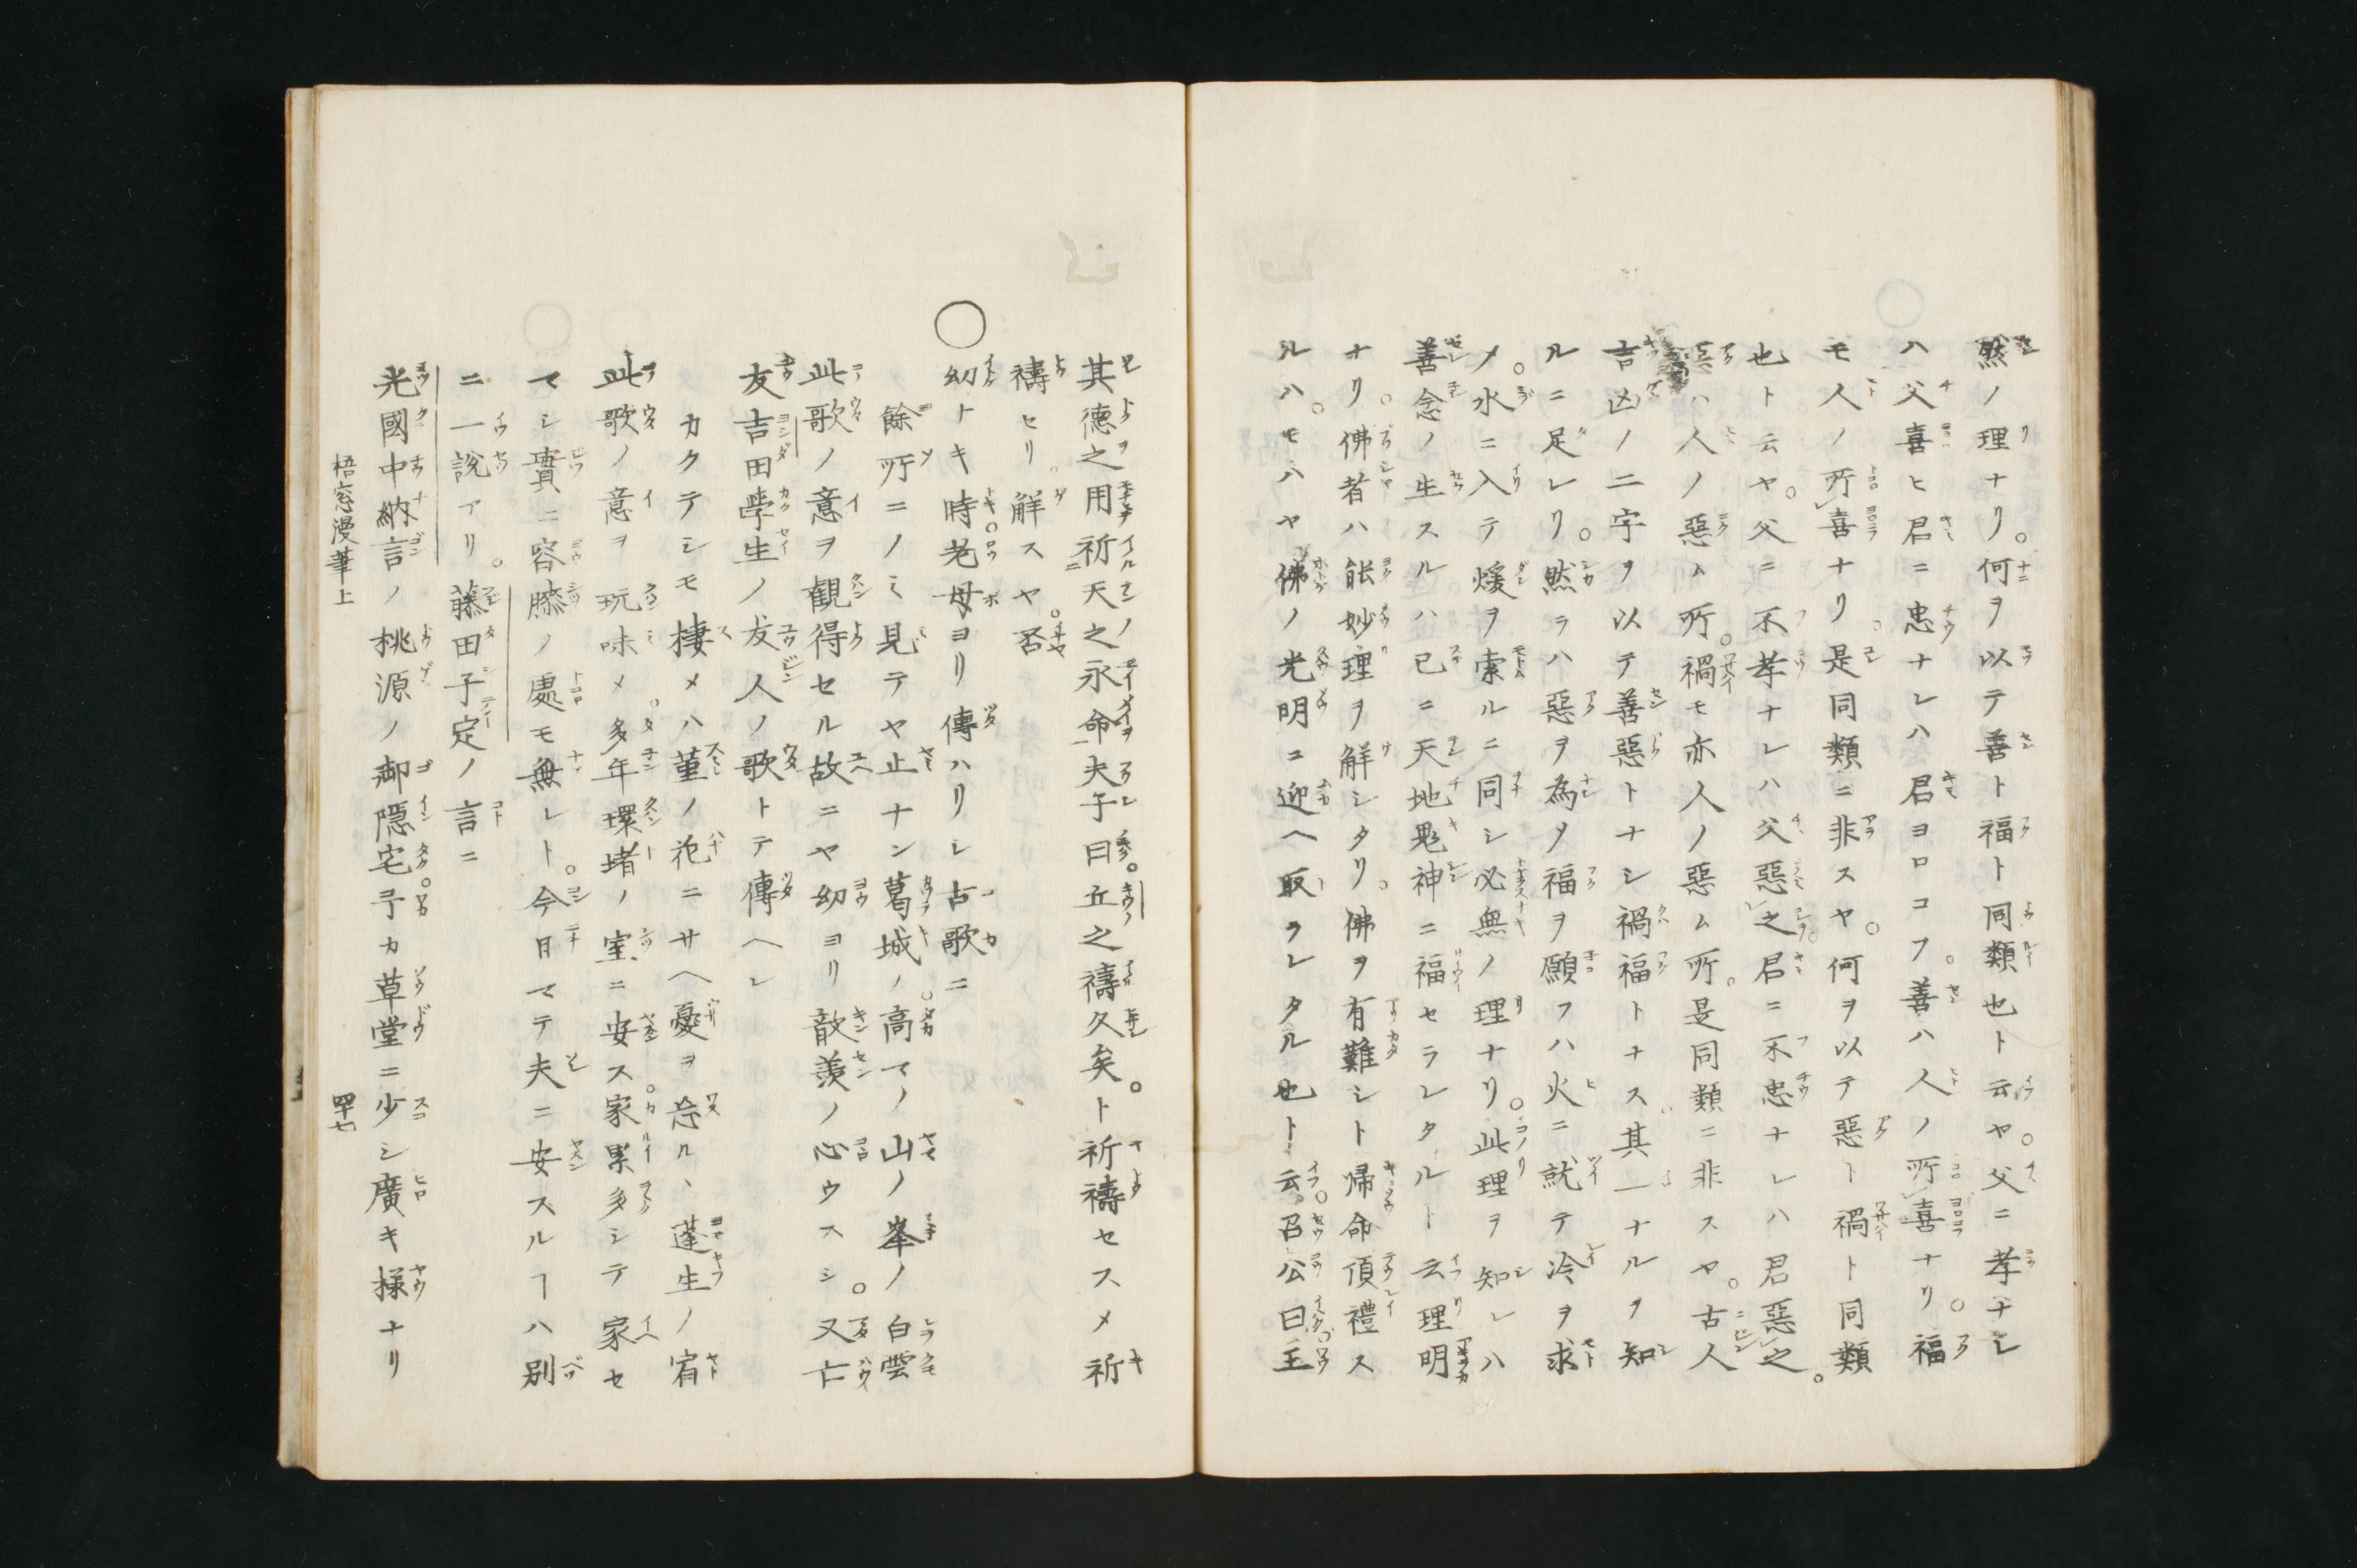 然ノ理ナリ。何ヲ以テ善ト福ト同類也ト云ヤ。父ニ孝ナレ
ハ父喜ヒ君ニ忠ナレハ君ヨロコフ。善ハ人ノ所喜ナリ。福
モ人ノ所喜ナリ。是同類ニ非スヤ。何ヲ以テ惡ト禍ト同類
也ト云ヤ。父ニ不孝ナレハ父惡之君ニ不忠ナレハ君惡之。
惡ハ人ノ惡ム所。禍モ亦人ノ惡ム所。是同類ニ非スヤ。古人
吉凶ノ二字ヲ以テ善惡トナシ禍福トナス其一ナルヲ知
ルニ足レリ。然ラハ惡ヲ為メ福ヲ願フハ火ニ就テ冷ヲ求
メ。水ニ入テ煖ヲ索ルニ同シ必無ノ理ナリ。此理ヲ知レハ
善念ノ生スルハ已ニ天地鬼神ニ福セラレタルト云理明
ナリ。佛者ハ能妙理ヲ解シタリ。佛ヲ有難シト帰命頂禮ス
ルハ。モハヤ佛ノ光明ニ迎ヘ取ラレタル也ト云。召公曰王
其德之用祈天之永命夫子曰丘之禱久矣。ト祈禱セスメ祈
禱セリ。解スヤ。否
○幼トキ時。老母ヨリ傳ハリシ古歌ニ
餘所ニノミ見テヤ止ナン葛城ノ。高マノ山ノ峯ノ白雲
此歌ノ意ヲ觀得セル故ニヤ幼ヨリ歆羨ノ心ウスシ。又亡
友吉田學生ノ友人ノ歌トテ傳ヘシ
カクテシモ棲メハ菫ノ花ニサヘ憂ヲ忘ルヽ蓬生ノ宿
此歌ノ意ヲ玩味メ。多年環堵ノ室ニ安ス。家累多シテ家セ
マシ實ニ容膝ノ處モ無レト。今日マテ夫ニ安スルヿハ別
ニ一說アリ。藤田子定ノ言ニ
光國中納言ノ桃源ノ御隱宅。予カ草堂ニ少シ廣キ樣ナリ
梧窓漫筆上 四十七